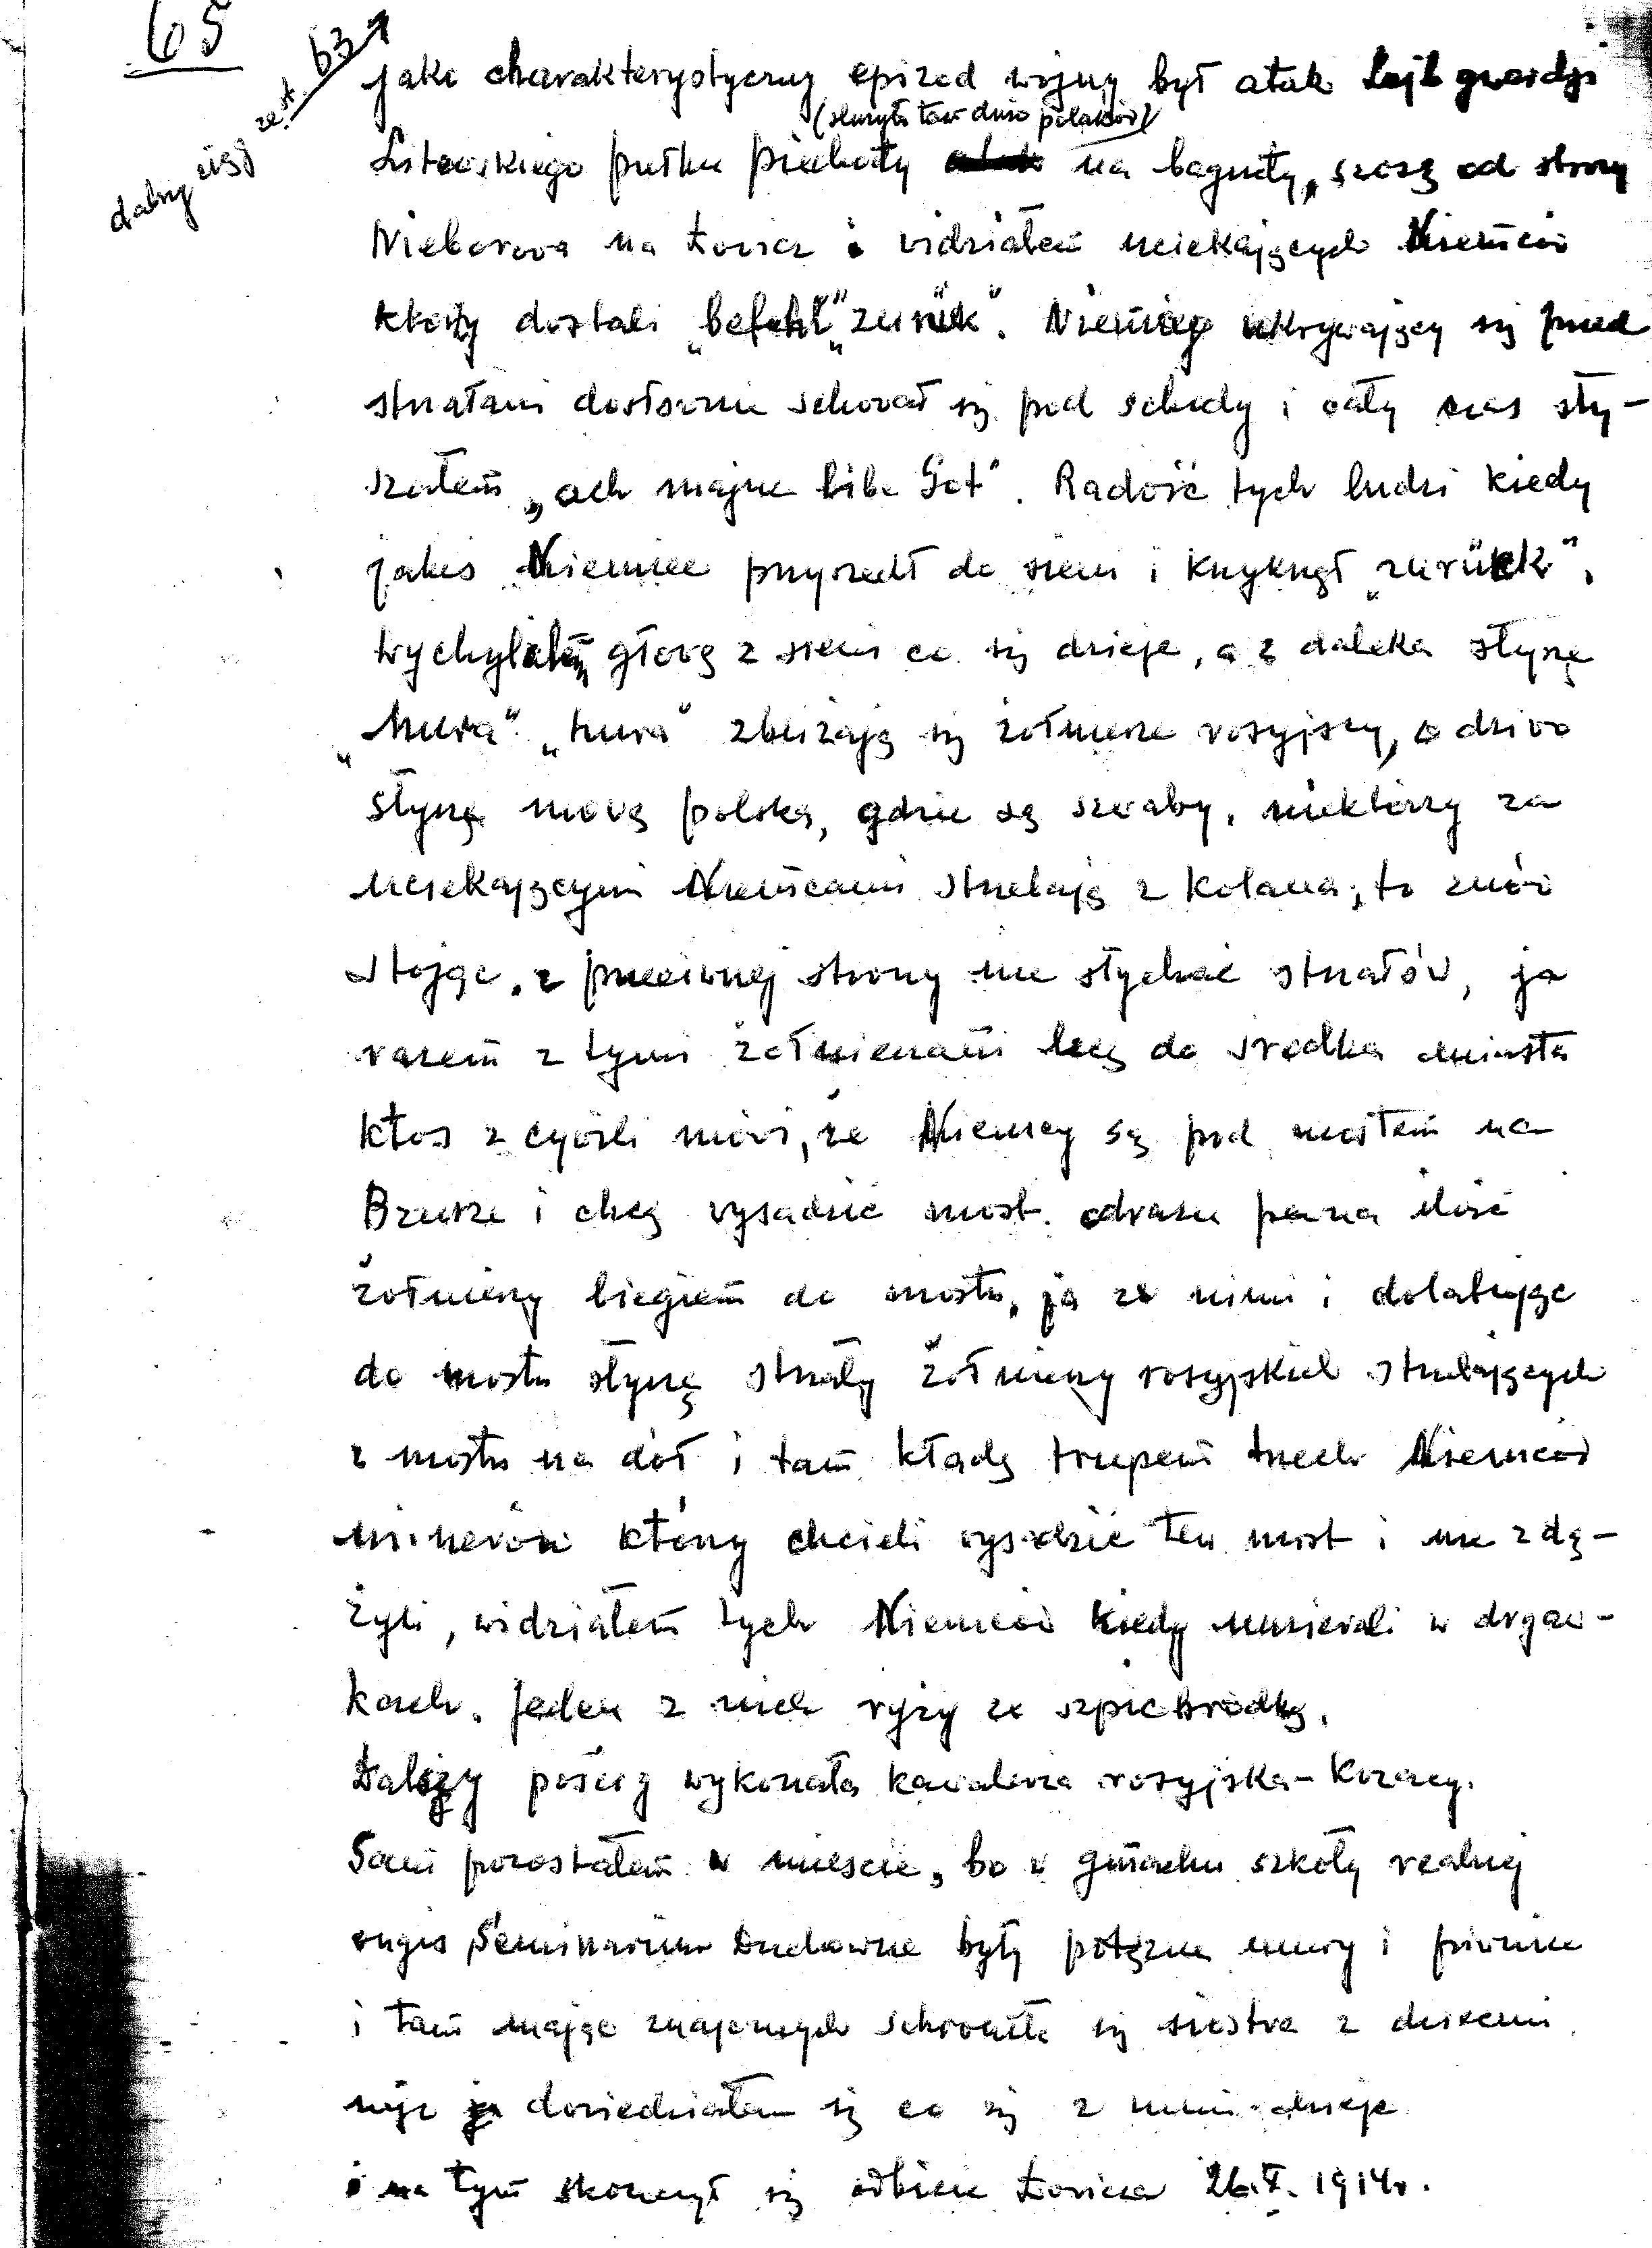 65
dalszy ciąg ze st. 63
jako charakterystyczny epizod wojny był atak Lejb gwardji
(służyło tam dużo polaków)
Litewskiego pułku piechoty na bagnety, szosą od strony
Nieborova na Łovicz i vidziałem uciekających Niemców
którzy dostali „befehl" „zurük". Niemiec ukrywający się przed
strzałami dosłownie schował się pod schody i cały czas sły-
szałem „ach majne libe Got". Radość tych ludzi kiedy
jakiś Niemiec przyszedł do sieni i krzyknął „zurükk".
wychyliłem głovę z sieni co się dzieje, a z daleka słyszę
„hura" „hura" zbliżają się żołnierze rosyjscy, o dzivo
słyszę movę polską, gdzie są szvaby, niektórzy za
uciekającymi Niemcami strzelają z kolana, to znów
stojąc, z przeciwnej strony nie słychać strzałów, ja
razem z tymi żołnierzami lecę do środka miasta
ktoś z cyvili móvi, że Niemcy są pod mostem na
Bzurze i chcą vysadzić most. odrazu pevna ilość
żołnierzy biegiem do mostu, ja za nimi i dolatując
do mostu słyszę strzały żołnierzy rosyjskich strzelających
z mostu na dół i tam kładą trupem trzech Niemców
minerów którzy chcieli vysadzić ten most i nie zdą-
żyli, widziałem tych Niemców kiedy umierali w drgaw-
kach. Jeden z nich ryży ze szpicbródką.
Dalszy pościg wykonała kavaleria rosyjska - Kozacy.
Sam pozostałem w mieście, bo v gmachu szkoły realnej
ongiś Seminarium Duchowne były potężne mury i pivnice
i tam mając znajomych schroniła się siostra z dziećmi
więc ja doviedziałem się co się z nimi dzieje
i na tym skończył się odbicie Łovicza 26.X. 1914r.